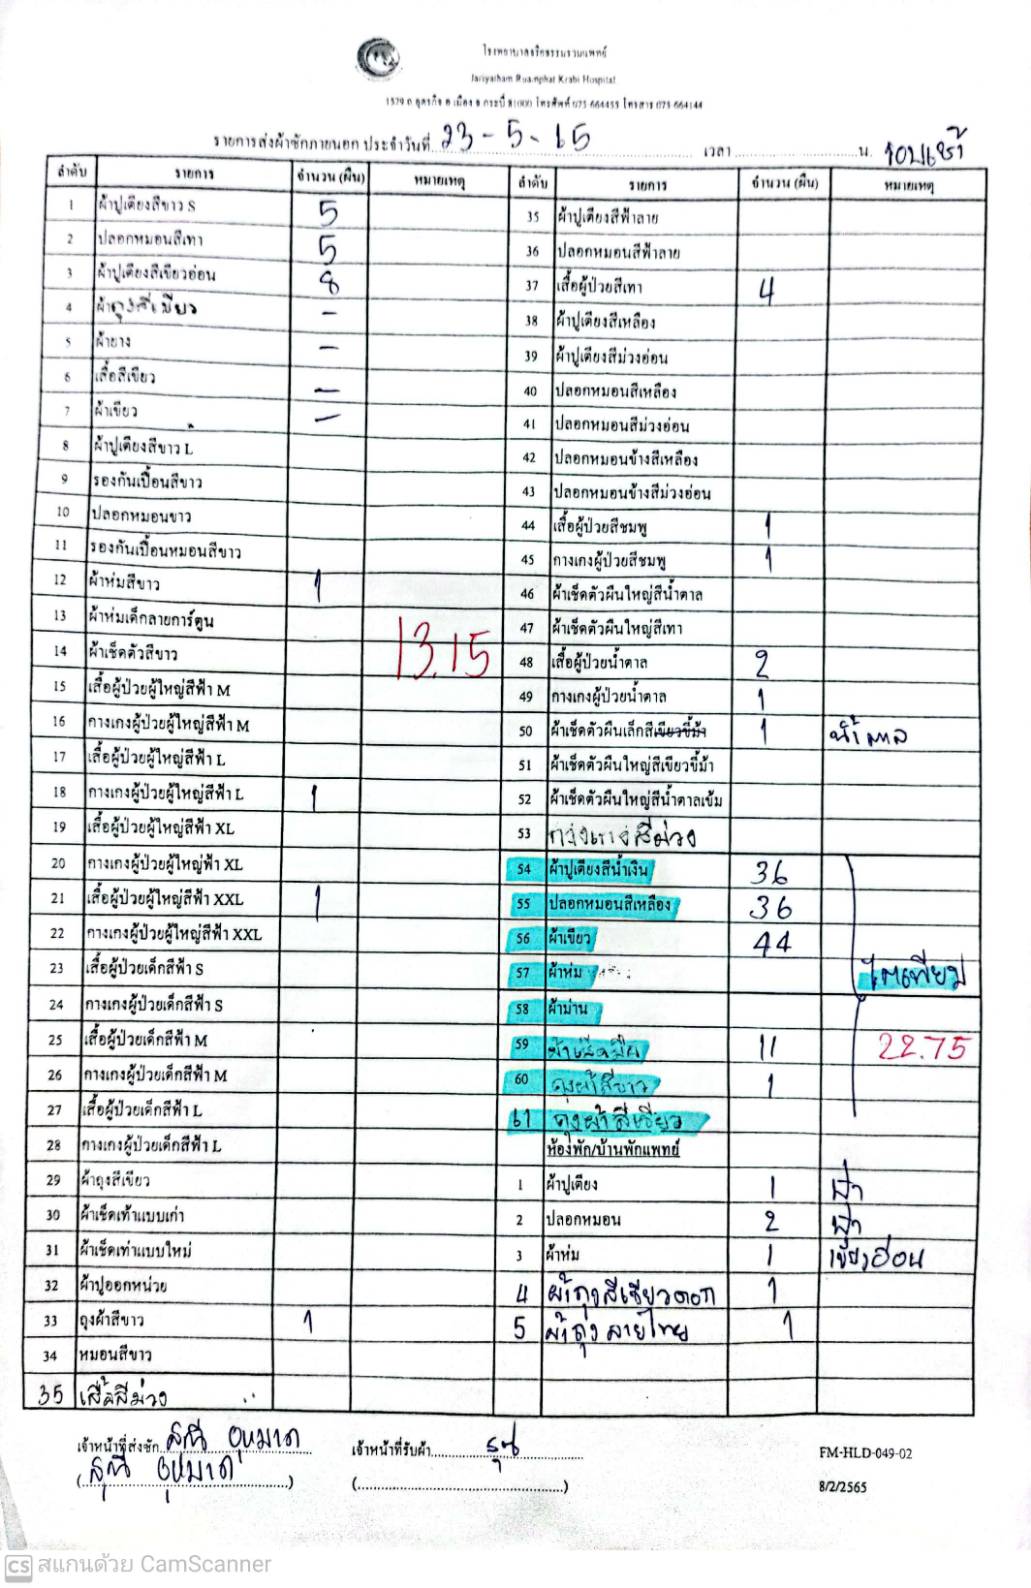 โรงพยาบาลจริยธรรมรวมแพทย์
Jariyatham Ruamphat Krabi Hospital
1579 ถ.อุตรกิจ อ.เมือง จ.กระบี่ 81000 โทรศัพท์ 075-664455 โทรสาร 075-664144
รายการส่งผ้าซักภายนอก ประจำวันที่ 23-5-65 เวลา น. รอบเช้า
ลำดับ รายการ จำนวน (ผืน) หมายเหตุ
1 ผ้าปูเตียงสีขาว S 5
2 ปลอกหมอนสีเทา 5
3 ผ้าปูเตียงสีเขียวอ่อน 8
4 ผ้าถุงสีเขียว -
5 ผ้ายาง -
6 เสื้อสีเขียว -
7 ผ้าเขียว -
8 ผ้าปูเตียงสีขาว L
9 รองกันเปื้อนสีขาว
10 ปลอกหมอนขาว
11 รองกันเปื้อนหมอนสีขาว
12 ผ้าห่มสีขาว 1
13 ผ้าห่มเด็กลายการ์ตูน
13.15
14 ผ้าเช็ดตัวสีขาว
15 เสื้อผู้ป่วยผู้ใหญ่สีฟ้า M
16 กางเกงผู้ป่วยผู้ใหญ่สีฟ้า M
17 เสื้อผู้ป่วยผู้ใหญ่สีฟ้า L
18 กางเกงผู้ป่วยผู้ใหญ่สีฟ้า L 1
19 เสื้อผู้ป่วยผู้ใหญ่สีฟ้า XL
20 กางเกงผู้ป่วยผู้ใหญ่ฟ้า XL
21 เสื้อผู้ป่วยผู้ใหญ่สีฟ้า XXL 1
22 กางเกงผู้ป่วยผู้ใหญ่สีฟ้า XXL
23 เสื้อผู้ป่วยเด็กสีฟ้า S
24 กางเกงผู้ป่วยเด็กสีฟ้า S
25 เสื้อผู้ป่วยเด็กสีฟ้า M
26 กางเกงผู้ป่วยเด็กสีฟ้า M
27 เสื้อผู้ป่วยเด็กสีฟ้า L
28 กางเกงผู้ป่วยเด็กสีฟ้า L
29 ผ้าถุงสีเขียว
30 ผ้าเช็ดเท้าแบบเก่า
31 ผ้าเช็ดเท้าแบบใหม่
32 ผ้าปูออกหน่วย
33 ถุงผ้าสีขาว 1
34 หมอนสีขาว
35 เสื้อสีม่วง
ลำดับ รายการ จำนวน (ผืน) หมายเหตุ
35 ผ้าปูเตียงสีฟ้าลาย
36 ปลอกหมอนสีฟ้าลาย
37 เสื้อผู้ป่วยสีเทา 4
38 ผ้าปูเตียงสีเหลือง
39 ผ้าปูเตียงสีม่วงอ่อน
40 ปลอกหมอนสีเหลือง
41 ปลอกหมอนสีม่วงอ่อน
42 ปลอกหมอนข้างสีเหลือง
43 ปลอกหมอนข้างสีม่วงอ่อน
44 เสื้อผู้ป่วยสีชมพู 1
45 กางเกงผู้ป่วยสีชมพู 1
46 ผ้าเช็ดตัวผืนใหญ่สีน้ำตาล
47 ผ้าเช็ดตัวผืนใหญ่สีเทา
48 เสื้อผู้ป่วยน้ำตาล 2
49 กางเกงผู้ป่วยน้ำตาล 1
50 ผ้าเช็ดตัวผืนเล็กสีเขียวขี้ม้า 1 น้ำตาล
51 ผ้าเช็ดตัวผืนใหญ่สีเขียวขี้ม้า
52 ผ้าเช็ดตัวผืนใหญ่สีน้ำตาลเข้ม
53 กางเกงสีม่วง
54 ผ้าปูเตียงสีน้ำเงิน 36
55 ปลอกหมอนสีเหลือง 36
56 ผ้าเขียว 44
57 ผ้าห่ม ไตเทียม
58 ผ้าม่าน
59 ผ้าเช็ดมือ 11 22.75
60 ถุงผ้าสีขาว 1
61 ถุงผ้าสีเขียว
ห้องพัก/บ้านพักแพทย์
1 ผ้าปูเตียง 1 ฟ้า
2 ปลอกหมอน 2 ฟ้า
3 ผ้าห่ม 1 เขียวอ่อน
4 ผ้าถุงสีเขียวดอก 1
5 ผ้าถุงลายไทย 1
เจ้าหน้าที่ส่งซัก สุณี อุหมาด เจ้าหน้าที่รับผ้า
(สุณี อุหมาด) ( )
FM-HLD-049-02
8/2/2565
CS สแกนด้วย CamScanner